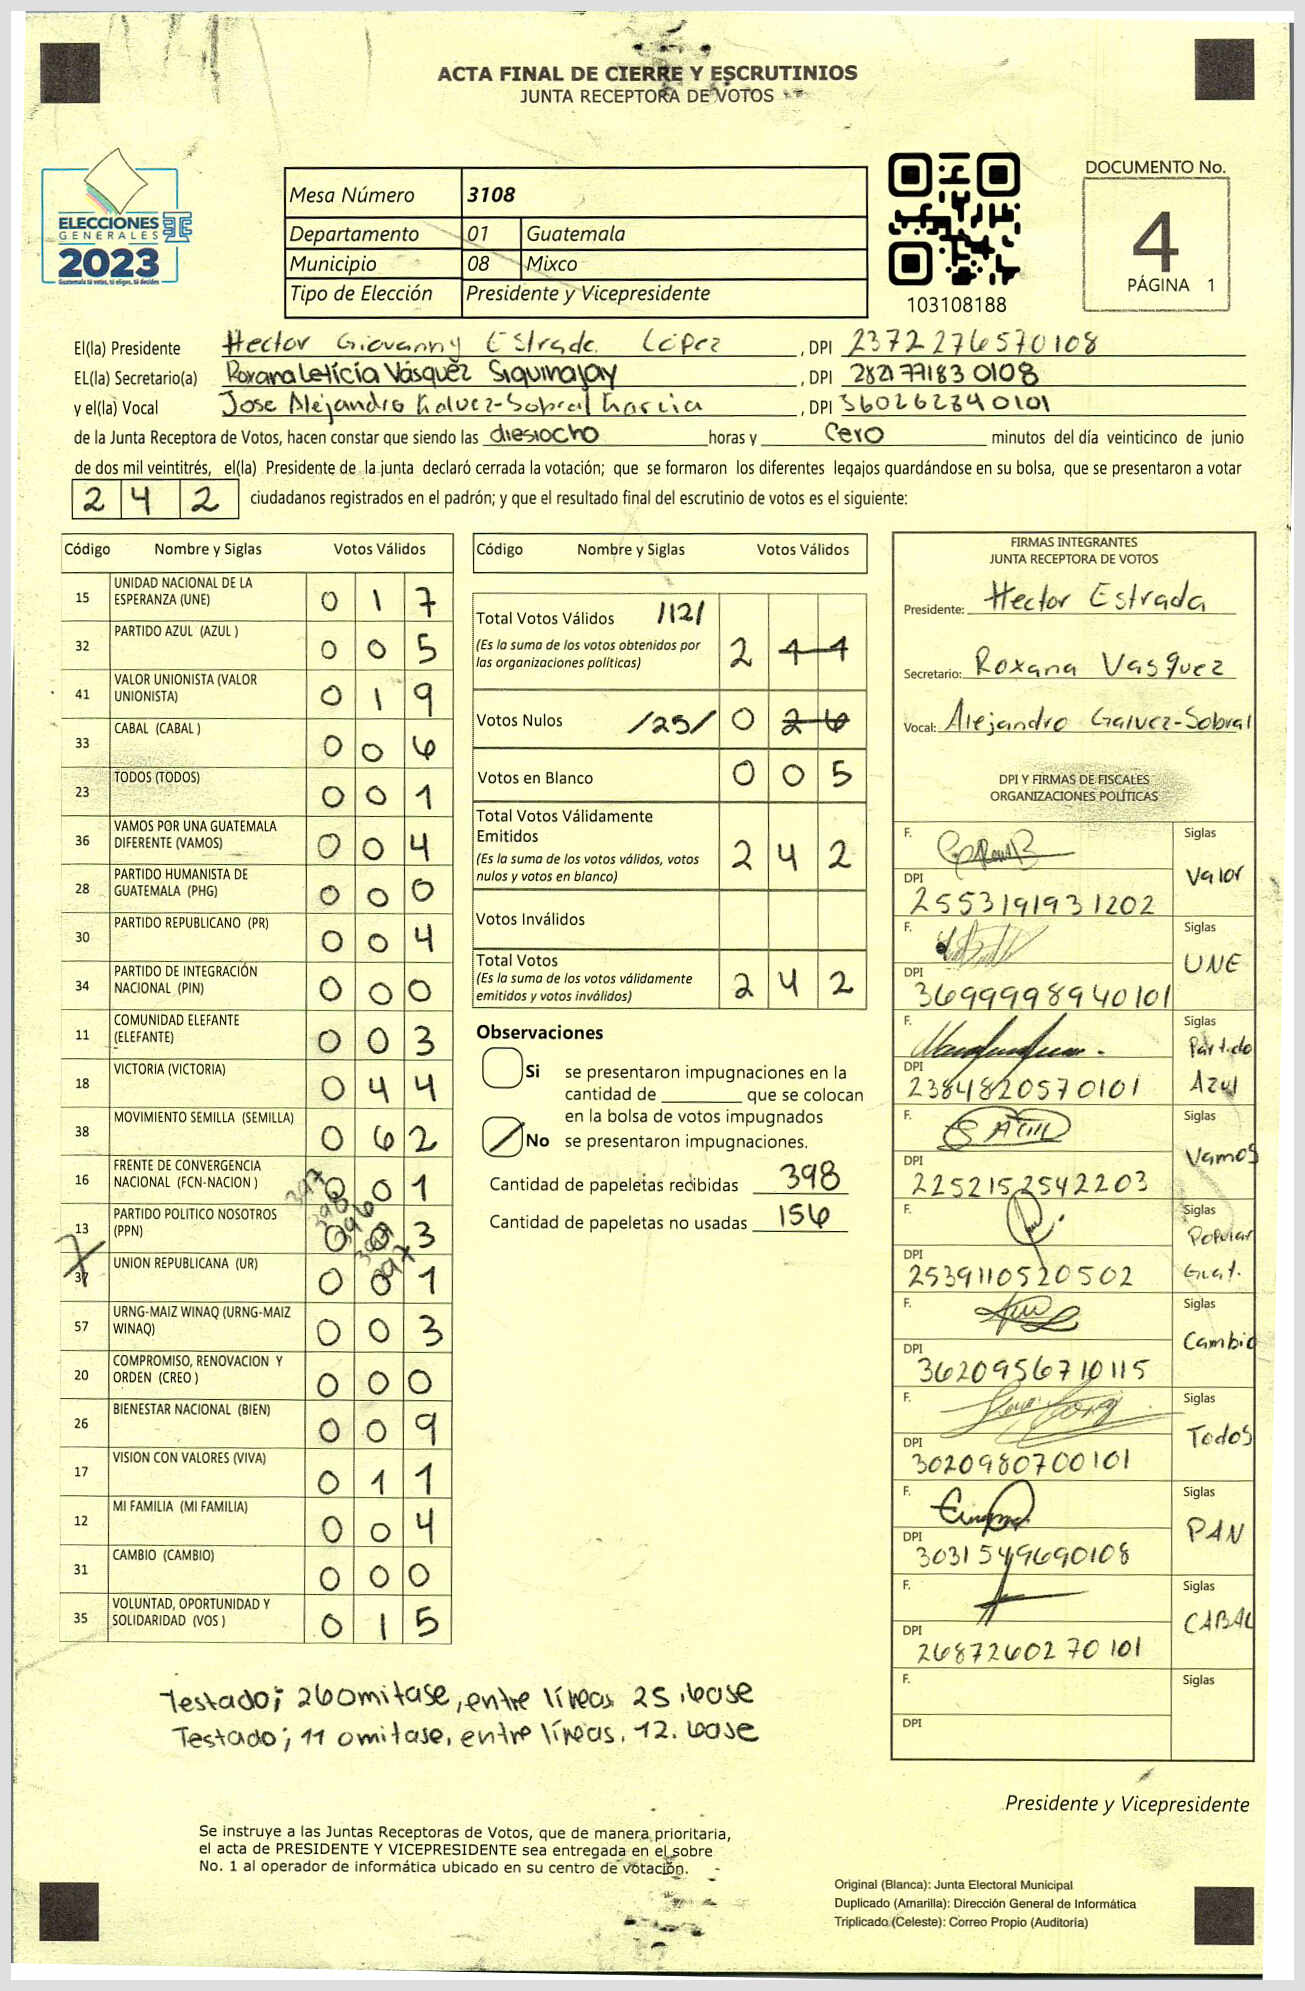 ACTA FINAL DE CIERRE Y ESCRUTINIOS
JUNTA RECEPTORA DE VOTOS
ELECCIONES
GENERALES
2023
Guatemala tú votas, tú eliges, tú decides
Mesa Número 3108
Departamento 01 Guatemala
Municipio 08 Mixco
Tipo de Elección Presidente y Vicepresidente
103108188
DOCUMENTO No.
4
PÁGINA 1
El(la) Presidente Hector Giovanny Estrada López , DPI 2372276570108
EL(la) Secretario(a) Roxana Leticia Vásquez Siquinajay , DPI 2821771830108
y el(la) Vocal Jose Alejandro Galvez-Sobral Garcia , DPI 360262840101
de la Junta Receptora de Votos, hacen constar que siendo las diesiocho horas y cero minutos del día veinticinco de junio
de dos mil veintitrés, el(la) Presidente de la junta declaró cerrada la votación; que se formaron los diferentes legajos guardándose en su bolsa, que se presentaron a votar
242 ciudadanos registrados en el padrón; y que el resultado final del escrutinio de votos es el siguiente:
Código Nombre y Siglas Votos Válidos
15 UNIDAD NACIONAL DE LA ESPERANZA (UNE) 0 1 7
32 PARTIDO AZUL (AZUL ) 0 0 5
41 VALOR UNIONISTA (VALOR UNIONISTA) 0 1 9
33 CABAL (CABAL ) 0 0 6
23 TODOS (TODOS) 0 0 1
36 VAMOS POR UNA GUATEMALA DIFERENTE (VAMOS) 0 0 4
28 PARTIDO HUMANISTA DE GUATEMALA (PHG) 0 0 0
30 PARTIDO REPUBLICANO (PR) 0 0 4
34 PARTIDO DE INTEGRACIÓN NACIONAL (PIN) 0 0 0
11 COMUNIDAD ELEFANTE (ELEFANTE) 0 0 3
18 VICTORIA (VICTORIA) 0 4 4
38 MOVIMIENTO SEMILLA (SEMILLA) 0 6 2
16 FRENTE DE CONVERGENCIA NACIONAL (FCN-NACION ) 0 0 1
13 PARTIDO POLITICO NOSOTROS (PPN) 0 0 3
37 UNION REPUBLICANA (UR) 0 0 1
57 URNG-MAIZ WINAQ (URNG-MAIZ WINAQ) 0 0 3
20 COMPROMISO, RENOVACION Y ORDEN (CREO ) 0 0 0
26 BIENESTAR NACIONAL (BIEN) 0 0 9
17 VISION CON VALORES (VIVA) 0 1 1
12 MI FAMILIA (MI FAMILIA) 0 0 4
31 CAMBIO (CAMBIO) 0 0 0
35 VOLUNTAD, OPORTUNIDAD Y SOLIDARIDAD (VOS ) 0 1 5
Código Nombre y Siglas Votos Válidos
Total Votos Válidos /12/
(Es la suma de los votos obtenidos por
las organizaciones políticas) 2 1 1
Votos Nulos /25/ 0 2 6
Votos en Blanco 0 0 5
Total Votos Válidamente
Emitidos
(Es la suma de los votos válidos, votos
nulos y votos en blanco) 2 4 2
Votos Inválidos
Total Votos
(Es la suma de los votos válidamente
emitidos y votos inválidos) 2 4 2
Observaciones
Si se presentaron impugnaciones en la
cantidad de ________ que se colocan
en la bolsa de votos impugnados
No se presentaron impugnaciones.
Cantidad de papeletas recibidas 398
Cantidad de papeletas no usadas 156
FIRMAS INTEGRANTES
JUNTA RECEPTORA DE VOTOS
Presidente: Hector Estrada
Secretario: Roxana Vasquez
Vocal: Alejandro Galvez-Sobral
DPI Y FIRMAS DE FISCALES
ORGANIZACIONES POLÍTICAS
F. Siglas
DPI 2553191931202 Valor
F. Siglas
DPI 3699998940101 UNE
F. Siglas
DPI 2384820570101 Partido Azul
F. Siglas
DPI 2252152542203 Vamos
F. Siglas
DPI 2539110520502 Popular Guat.
F. Siglas
DPI 3620956710115 Cambio
F. Siglas
DPI 3020980700101 Todos
F. Siglas
DPI 3031549690108 PAN
F. Siglas
DPI 2687260270101 CABAL
F. Siglas
DPI
Testado; 26 omitase, entre líneas 25. lease
Testado; 11 omitase, entre líneas, 12. lease
Presidente y Vicepresidente
Se instruye a las Juntas Receptoras de Votos, que de manera prioritaria,
el acta de PRESIDENTE Y VICEPRESIDENTE sea entregada en el sobre
No. 1 al operador de informática ubicado en su centro de votación.
Original (Blanca): Junta Electoral Municipal
Duplicado (Amarilla): Dirección General de Informática
Triplicado (Celeste): Correo Propio (Auditoría)